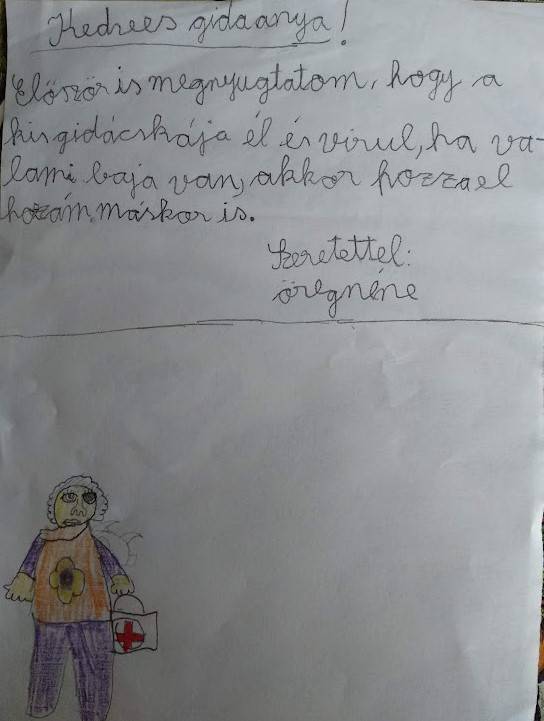 Kedves gidaanya!
Először is megnyugtatom, hogy a
kis gidácskája él és virul, ha va-
lami baja van, akkor hozza el
hozám máskor is.
Szeretettel:
öregnéne